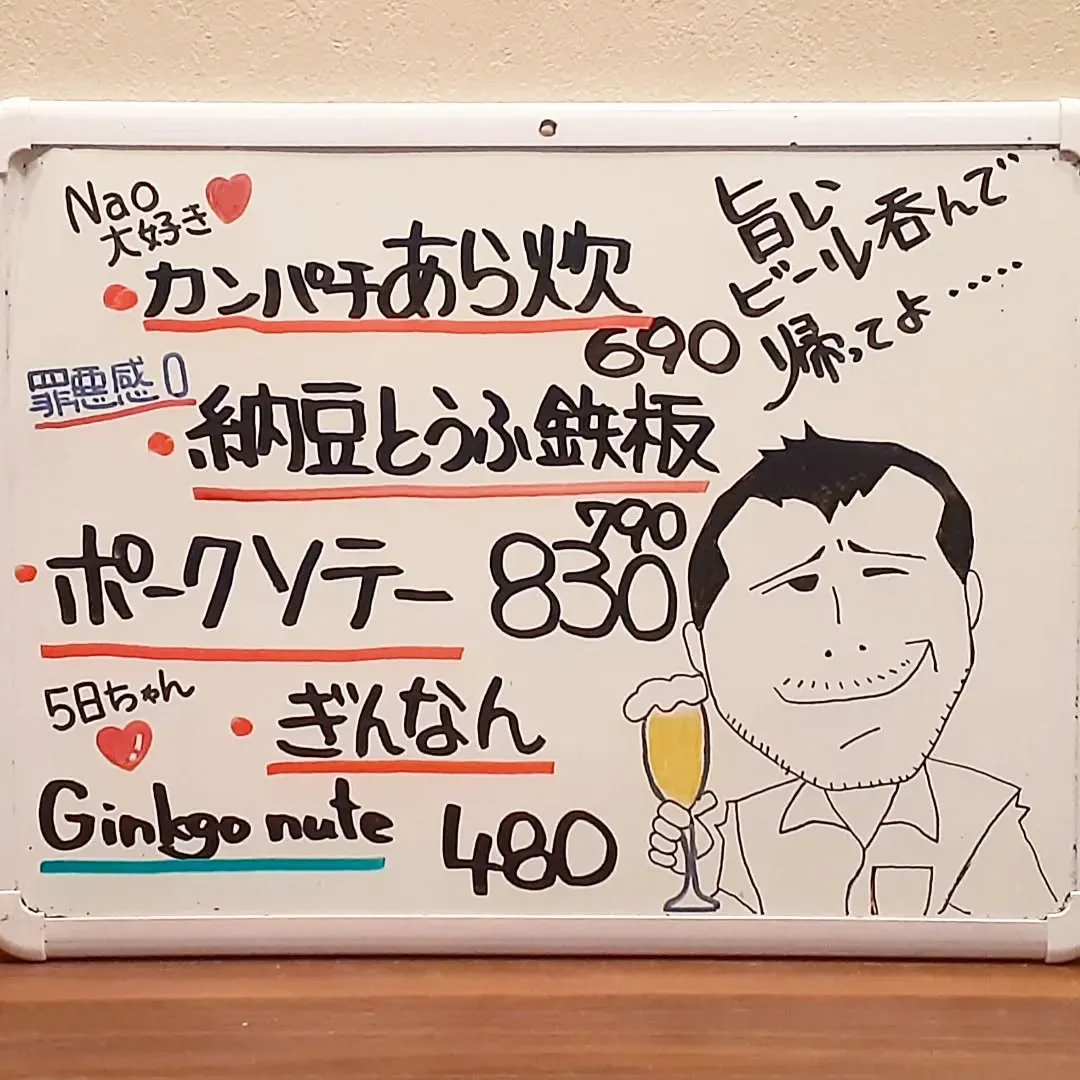 Nao
大好き
カンパチあら炊
690
旨い
ビール呑んで
帰ってよ……
罪悪感0
納豆とうふ鉄板
790
ポークソテー 830
5日ちゃん
ぎんなん
Ginkgo nute 480